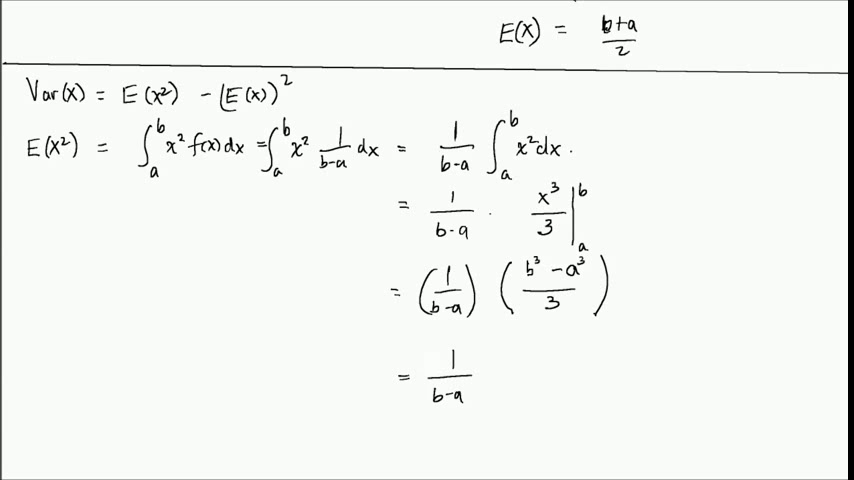 E(X) = b+a/2
Var(X) = E(X²) - (E(X))²
E(X²) = ∫ₐᵇ x² f(x) dx = ∫ₐᵇ x² 1/b-a dx = 1/b-a ∫ₐᵇ x² dx.
= 1/b-a · x³/3 |ₐᵇ
= (1/b-a) (b³-a³/3)
= 1/b-a